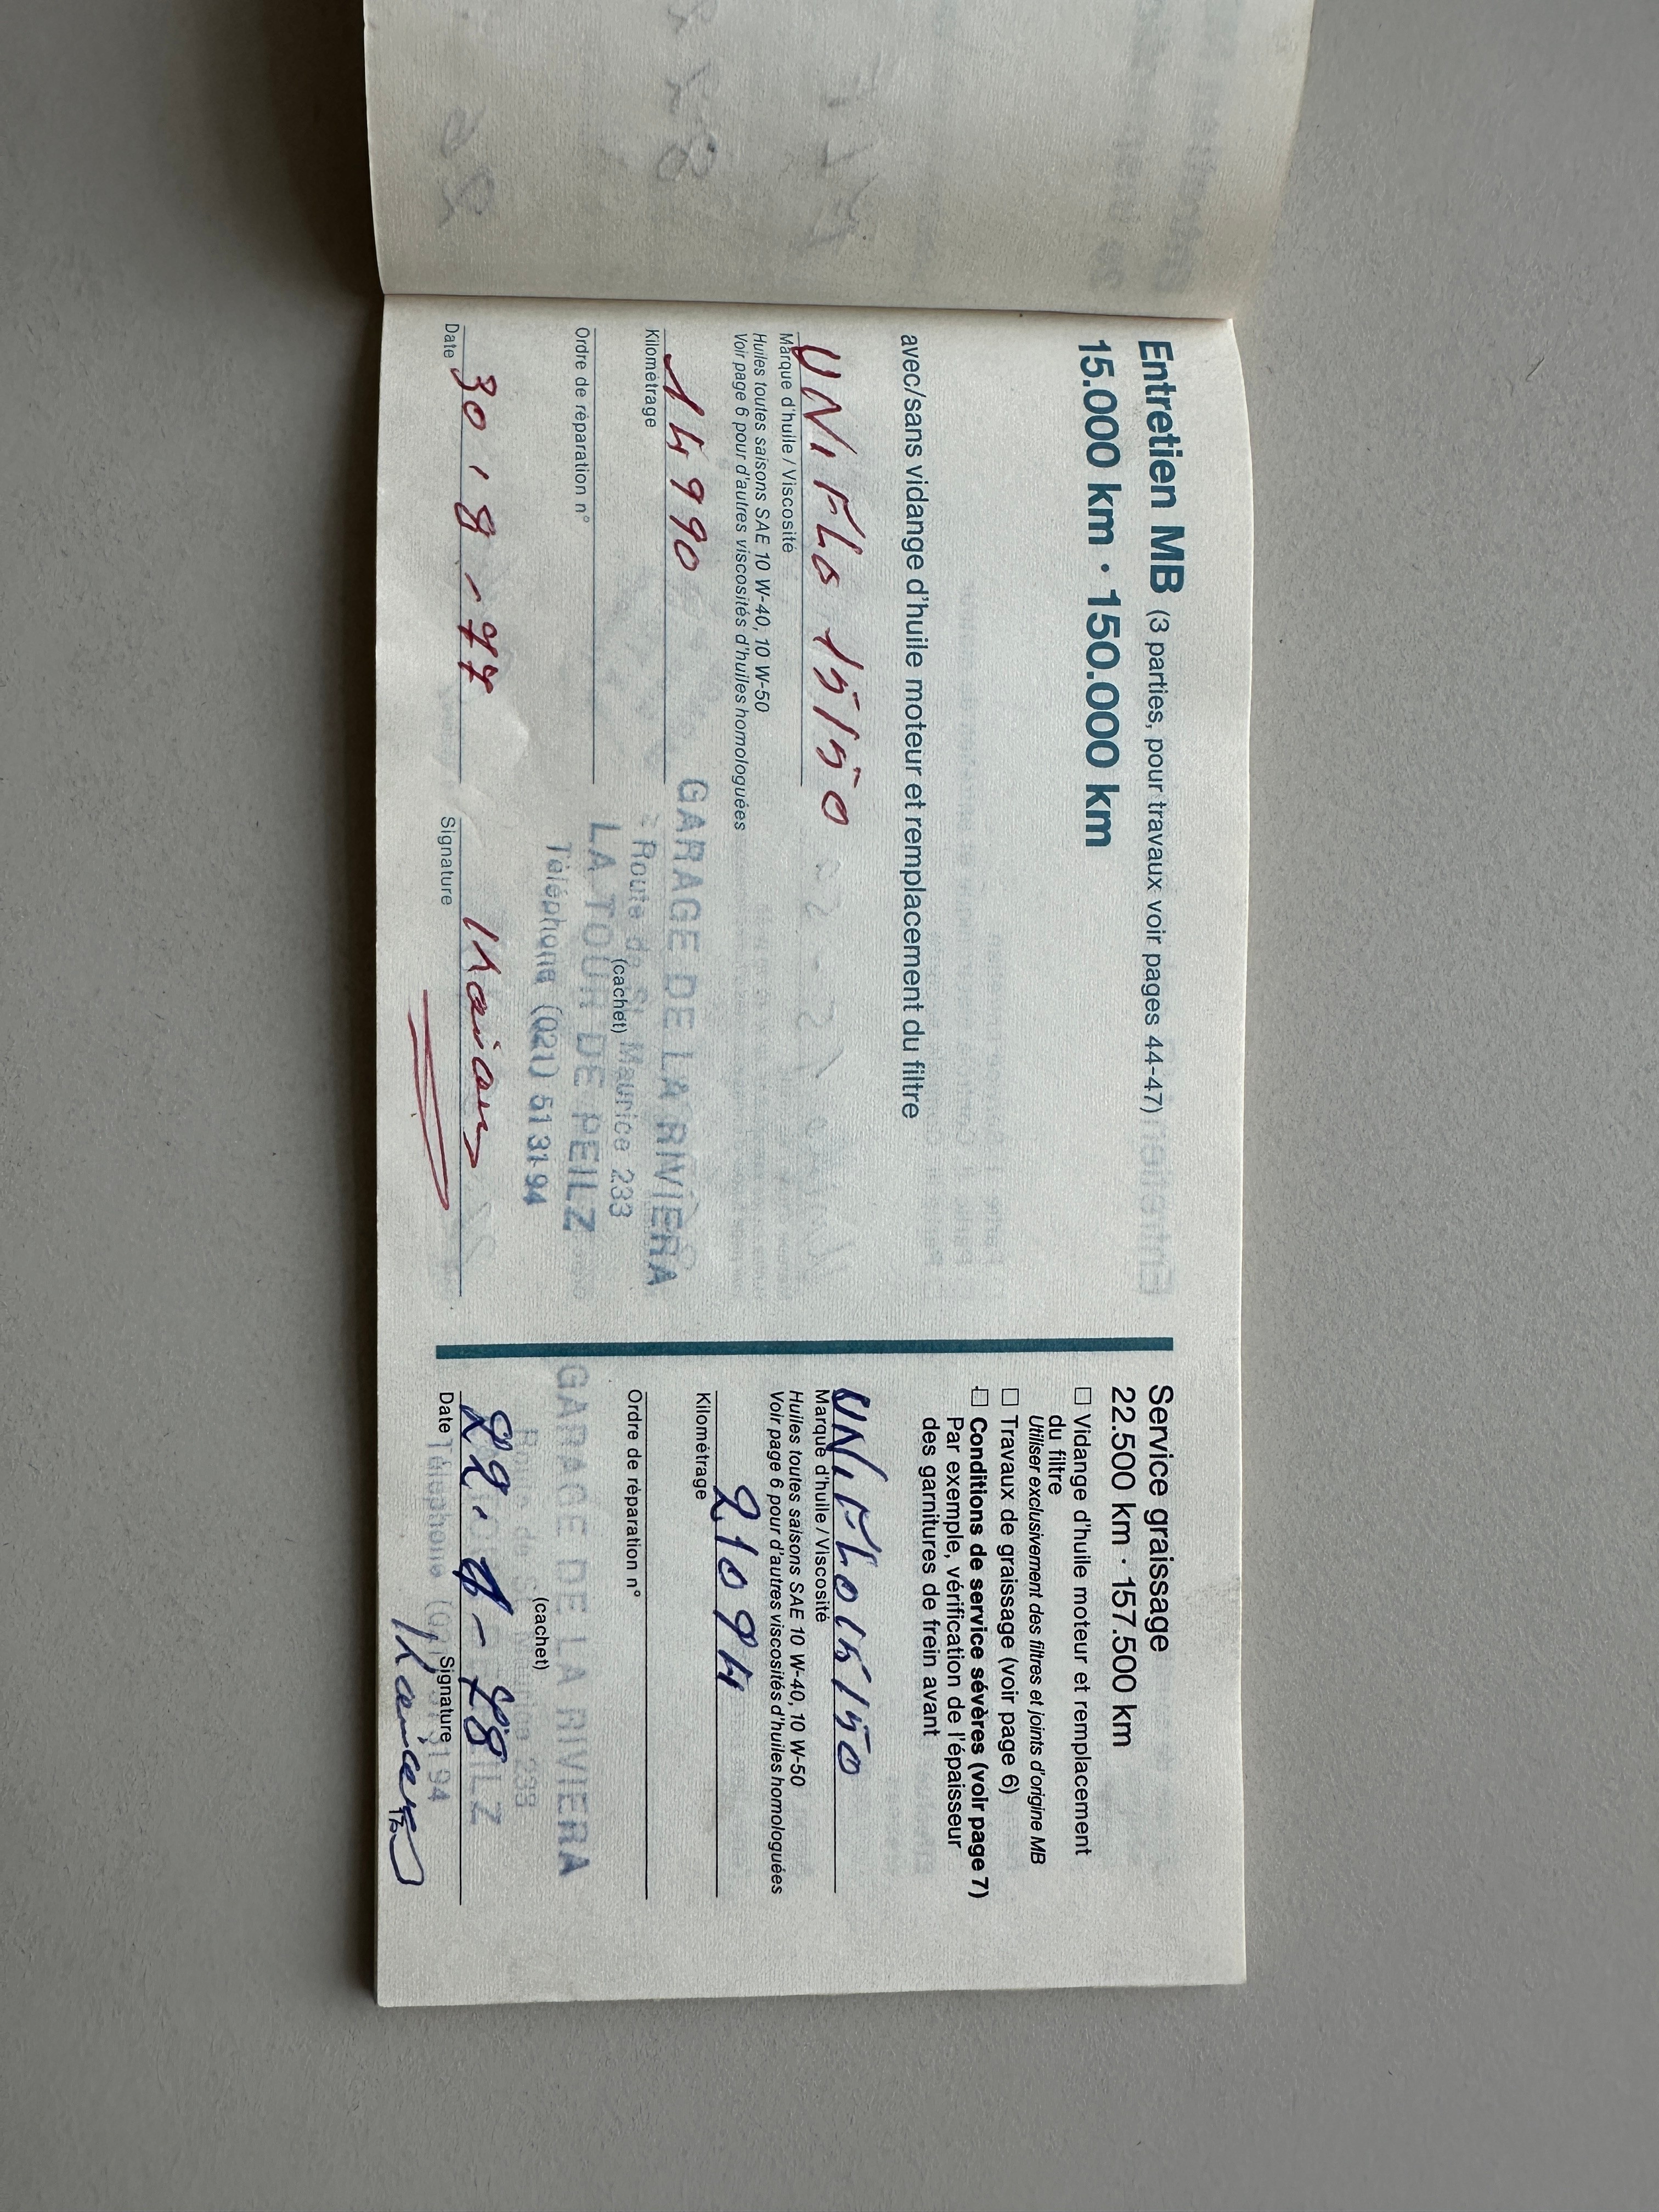 Entretien MB (3 parties, pour travaux voir pages 44-47)
15.000 km · 150.000 km
avec/sans vidange d'huile moteur et remplacement du filtre
UNIFLO 15/50
Marque d'huile / Viscosité
Huiles toutes saisons SAE 10 W-40, 10 W-50
Voir page 6 pour d'autres viscosités d'huiles homologuées
14990
Kilométrage
Ordre de réparation n°
GARAGE DE LA RIVIERA
Route de St Maurice 233
(cachet)
LA TOUR DE PEILZ
Téléphone (021) 51 31 94
30.8-77
Date
Signature
Service graissage
22.500 km · 157.500 km
☐ Vidange d'huile moteur et remplacement
du filtre
Utiliser exclusivement des filtres et joints d'origine MB
☐ Travaux de graissage (voir page 6)
☐ Conditions de service sévères (voir page 7)
Par exemple, vérification de l'épaisseur
des garnitures de frein avant
UNIFLO 15/50
Marque d'huile / Viscosité
Huiles toutes saisons SAE 10 W-40, 10 W-50
Voir page 6 pour d'autres viscosités d'huiles homologuées
21094
Kilométrage
Ordre de réparation n°
GARAGE DE LA RIVIERA
Route de St Maurice 233
(cachet)
Date
Signature
Téléphone (021) 51 31 94